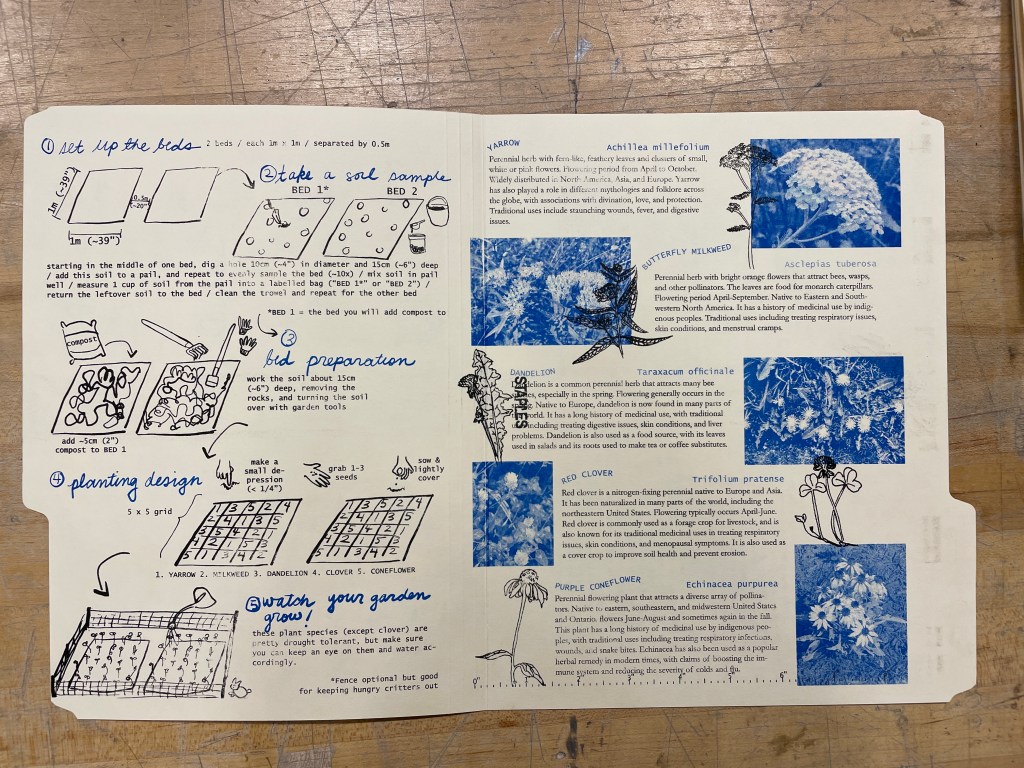 ① set up the beds 2 beds / each 1m x 1m / separated by 0.5m
1m (~39")
0.5m
(~20")
1m (~39")
② take a soil sample
BED 1* BED 2
starting in the middle of one bed, dig a hole 10cm (~4") in diameter and 15cm (~6") deep
/ add this soil to a pail, and repeat to evenly sample the bed (~10x) / mix soil in pail
well / measure 1 cup of soil from the pail into a labelled bag ("BED 1*" or "BED 2") /
return the leftover soil to the bed / clean the trowel and repeat for the other bed
*BED 1 = the bed you will add compost to
compost
③
bed preparation
work the soil about 15cm
(~6") deep, removing the
rocks, and turning the soil
over with garden tools
add ~5cm (2")
compost to BED 1
④ planting design
make a
small de-
pression
(< 1/4")
grab 1-3
seeds
sow &
lightly
cover
5 x 5 grid
1 3 5 2 4
2 4 1 3 5
3 5 4 2 1
4 2 3 5 1
5 1 3 4 2
1 3 5 2 4
2 4 1 3 5
3 5 4 2 1
4 2 3 5 1
5 1 3 4 2
1. YARROW 2. MILKWEED 3. DANDELION 4. CLOVER 5. CONEFLOWER
⑤ watch your garden
grow!
these plant species (except clover) are
pretty drought tolerant, but make sure
you can keep an eye on them and water ac-
cordingly.
*Fence optional but good
for keeping hungry critters out
YARROW Achillea millefolium
Perennial herb with fern-like, feathery leaves and clusters of small,
white or pink flowers. Flowering period from April to October.
Widely distributed in North America, Asia, and Europe. Yarrow
has also played a role in different mythologies and folklore across
the globe, with associations with divination, love, and protection.
Traditional uses include staunching wounds, fever, and digestive
issues.
BUTTERFLY MILKWEED
Asclepias tuberosa
Perennial herb with bright orange flowers that attract bees, wasps,
and other pollinators. The leaves are food for monarch caterpillars.
Flowering period April-September. Native to Eastern and South-
western North America. It has a history of medicinal use by indig-
enous peoples. Traditional uses including treating respiratory issues,
skin conditions, and menstrual cramps.
DANDELION Taraxacum officinale
Dandelion is a common perennial herb that attracts many bee
species, especially in the spring. Flowering generally occurs in the
spring. Native to Europe, dandelion is now found in many parts of
the world. It has a long history of medicinal use, with traditional
uses including treating digestive issues, skin conditions, and liver
problems. Dandelion is also used as a food source, with its leaves
used in salads and its roots used to make tea or coffee substitutes.
STAPLES
RED CLOVER Trifolium pratense
Red clover is a nitrogen-fixing perennial native to Europe and Asia.
It has been naturalized in many parts of the world, including the
northeastern United States. Flowering typically occurs April-June.
Red clover is commonly used as forage crop for livestock, and is
also known for its traditional medicinal uses in treating respiratory
issues, skin conditions, and menopausal symptoms. It is also used as
a cover crop to improve soil health and prevent erosion.
PURPLE CONEFLOWER Echinacea purpurea
Perennial flowering plant that attracts a diverse array of pollina-
tors. Native to eastern, southeastern, and midwest United States
and Ontario. flowers June-August and sometimes again in the fall.
This plant has a long history of medicinal use by indigenous peo-
ples, with traditional uses including treating respiratory infections,
wounds, and snake bites. Echinacea has also been used as a popular
herbal remedy in modern times, with claims of boosting the im-
mune system and reducing the severity of colds and flu.
0" 6"